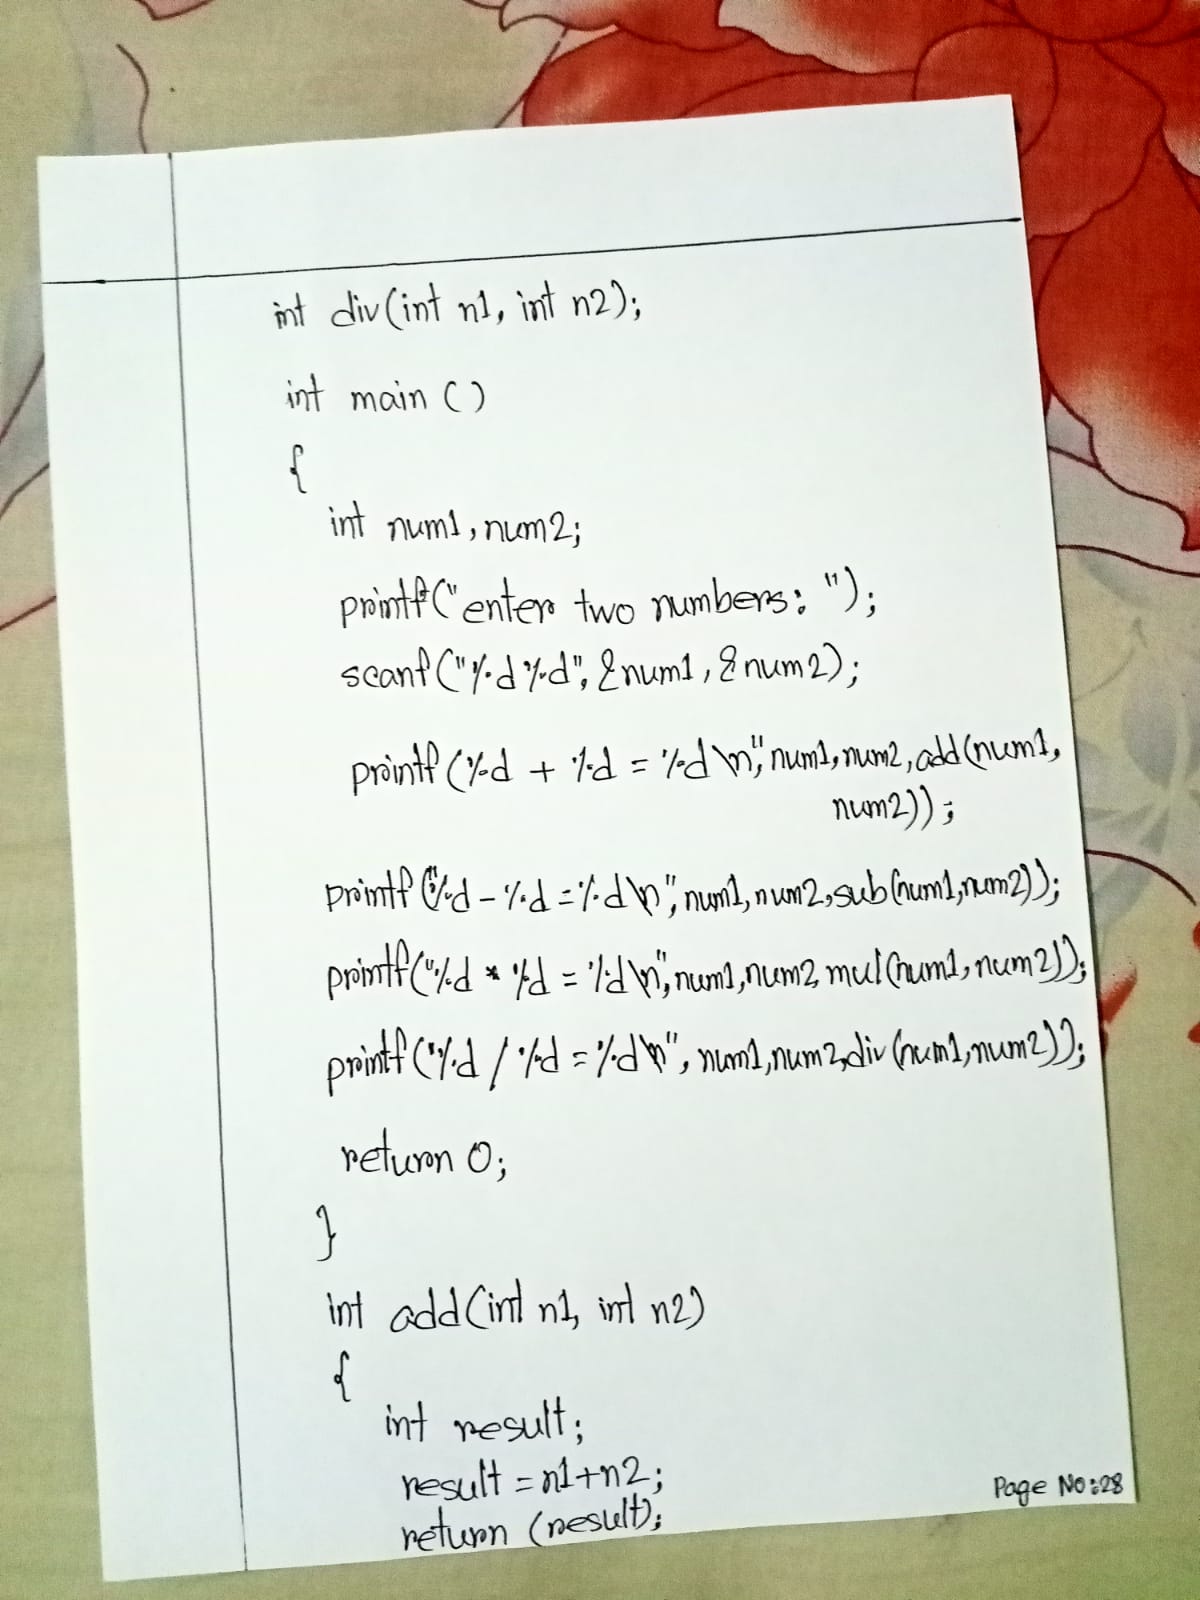 int div(int n1, int n2);
int main ()
{
int num1, num2;
printf("enter two numbers: ");
scanf("%d %d", &num1, &num2);
printf(%d + %d = %d \n", num1, num2, add(num1,
num2));
printf("%d - %d = %d \n", num1, num2, sub(num1,num2));
printf("%d * %d = %d \n", num1,num2, mul(num1, num2));
printf("%d / %d = %d \n", num1,num2,div(num1,num2));
return 0;
}
int add(int n1, int n2)
{
int result;
result = n1+n2;
return (result);
Page No:28